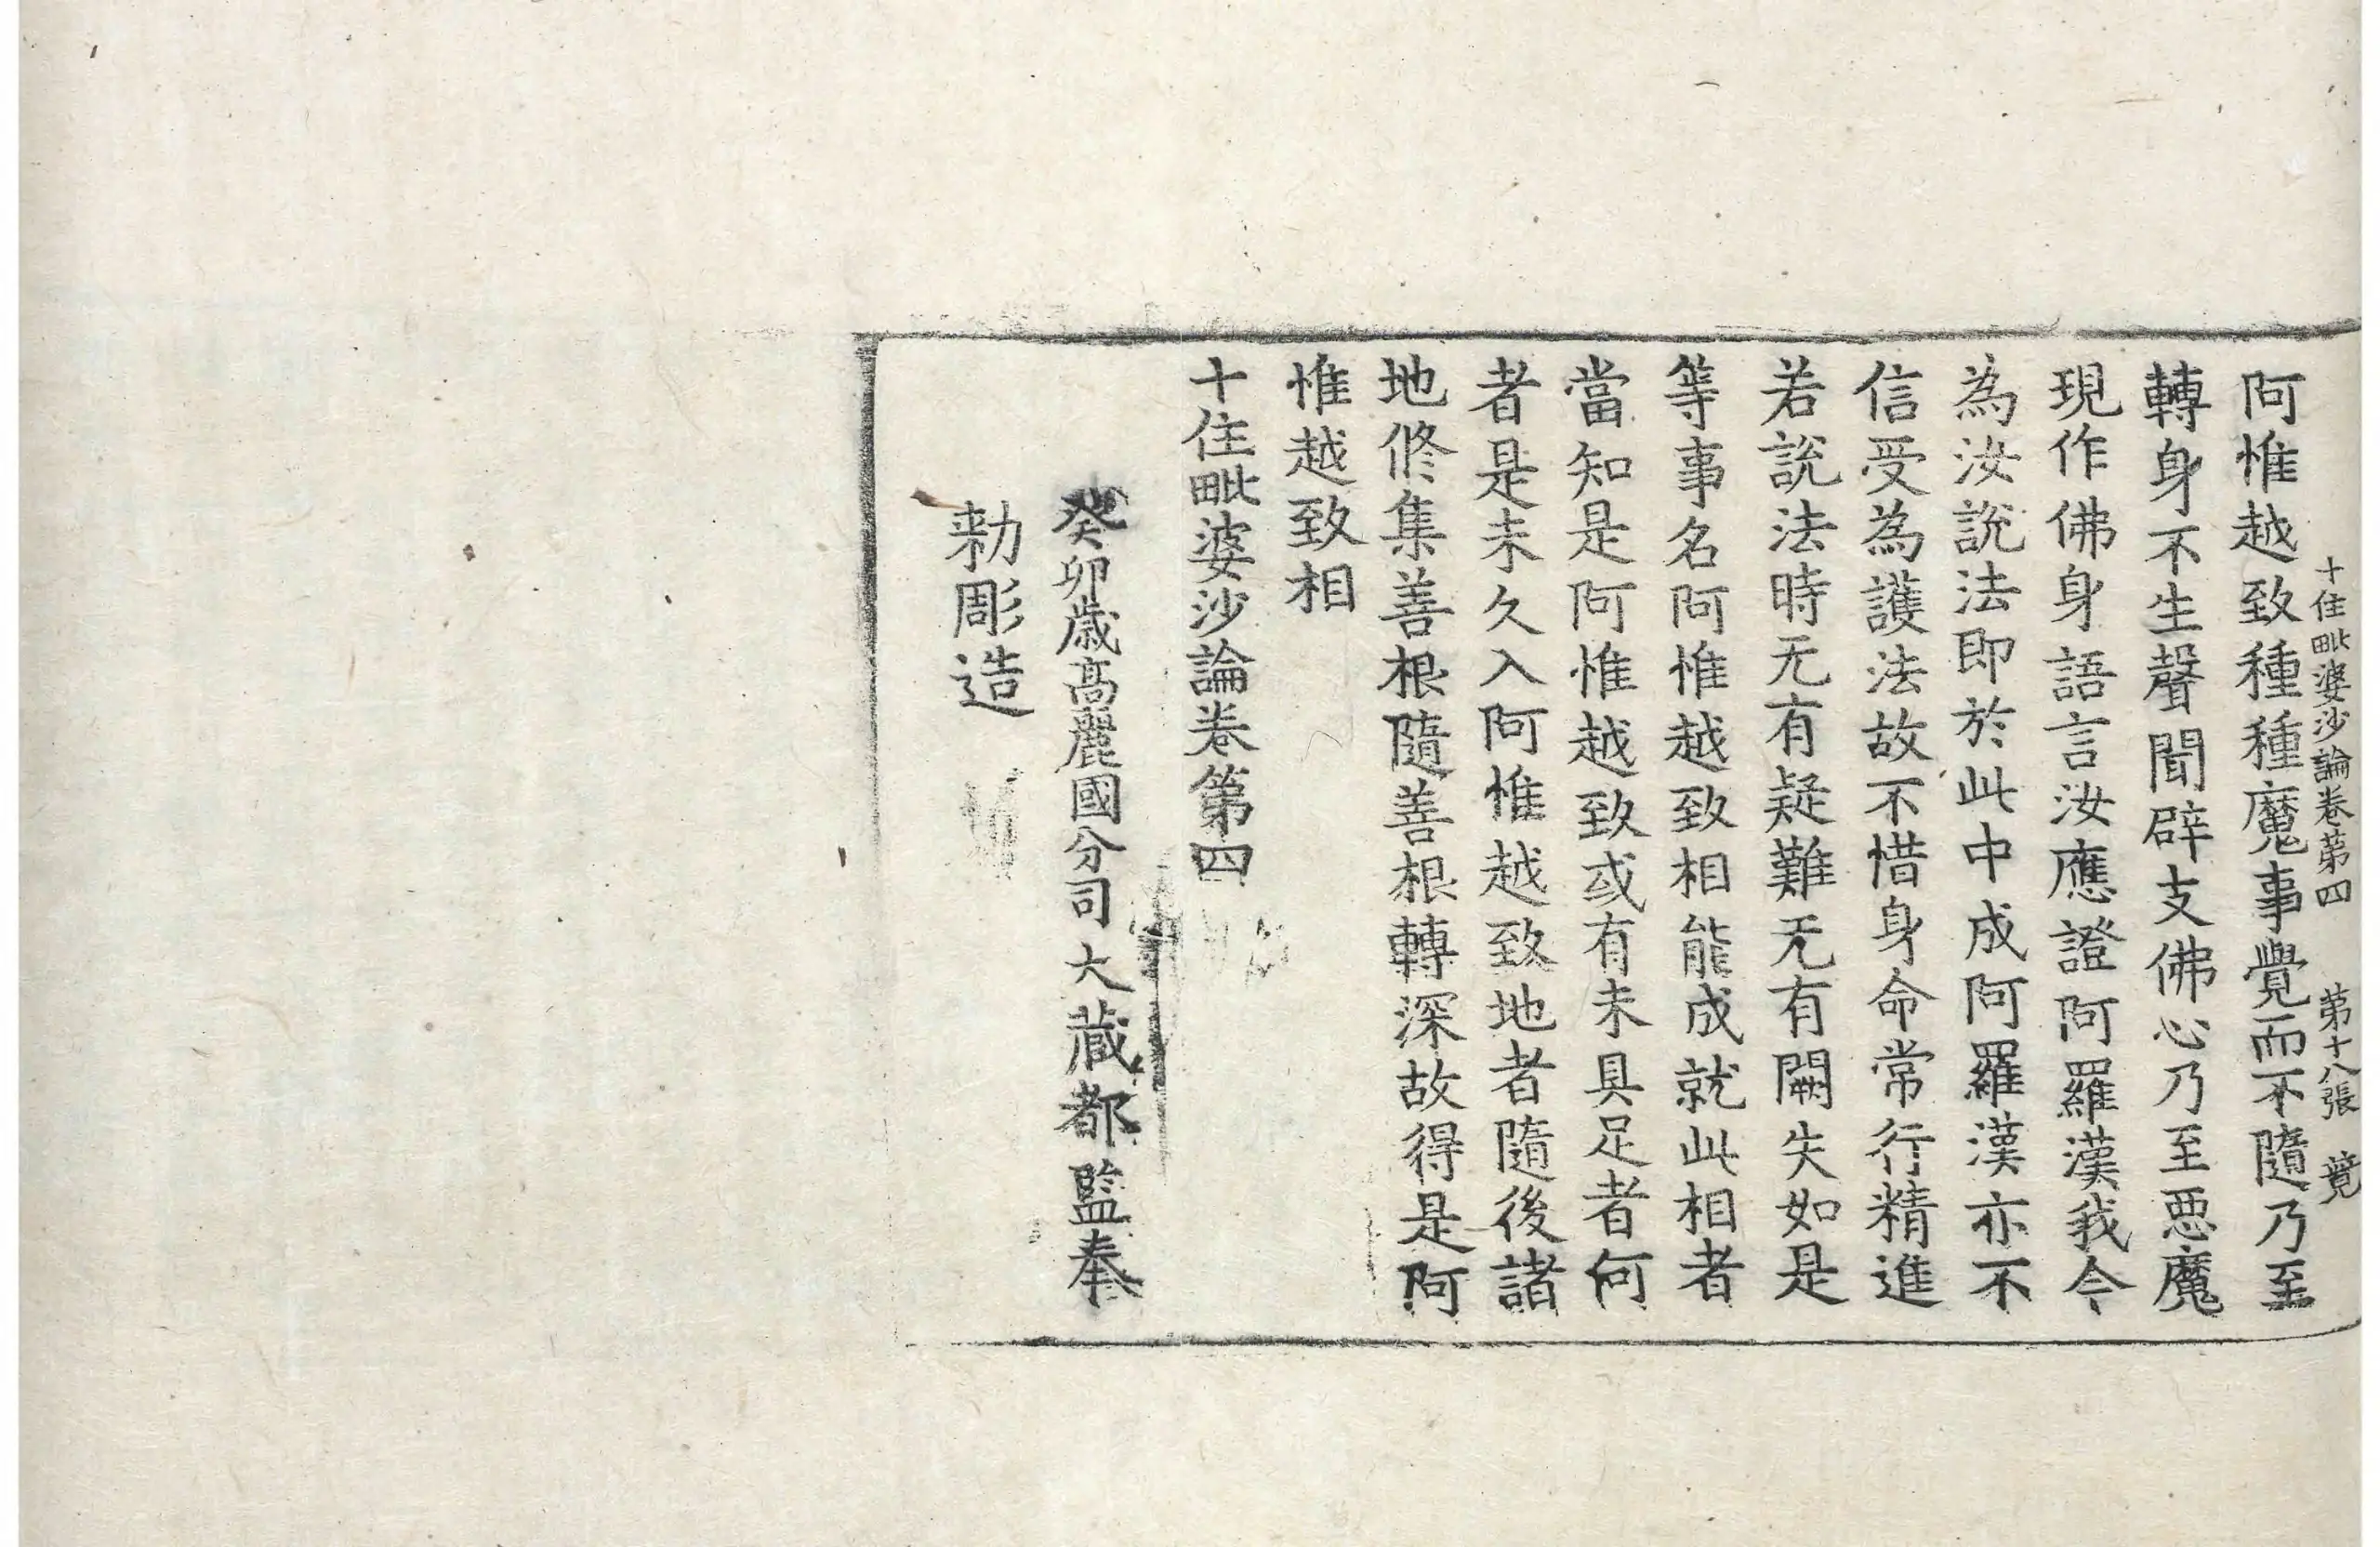 十住毗婆沙論卷第四 第十八張 覔
阿惟越致種種魔事覺而不隨乃至
轉身不生聲聞辟支佛心乃至惡魔
現作佛身語言汝應證阿羅漢我今
為汝說法即於此中成阿羅漢亦不
信受為護法故不惜身命常行精進
若說法時无有疑難无有闕失如是
等事名阿惟越致相能成就此相者
當知是阿惟越致或有未具足者何
者是未久入阿惟越致地者隨後諸
地修集善根隨善根轉深故得是阿
惟越致相
十住毗婆沙論卷第四
癸卯歳高麗國分司大藏都監奉
勑彫造